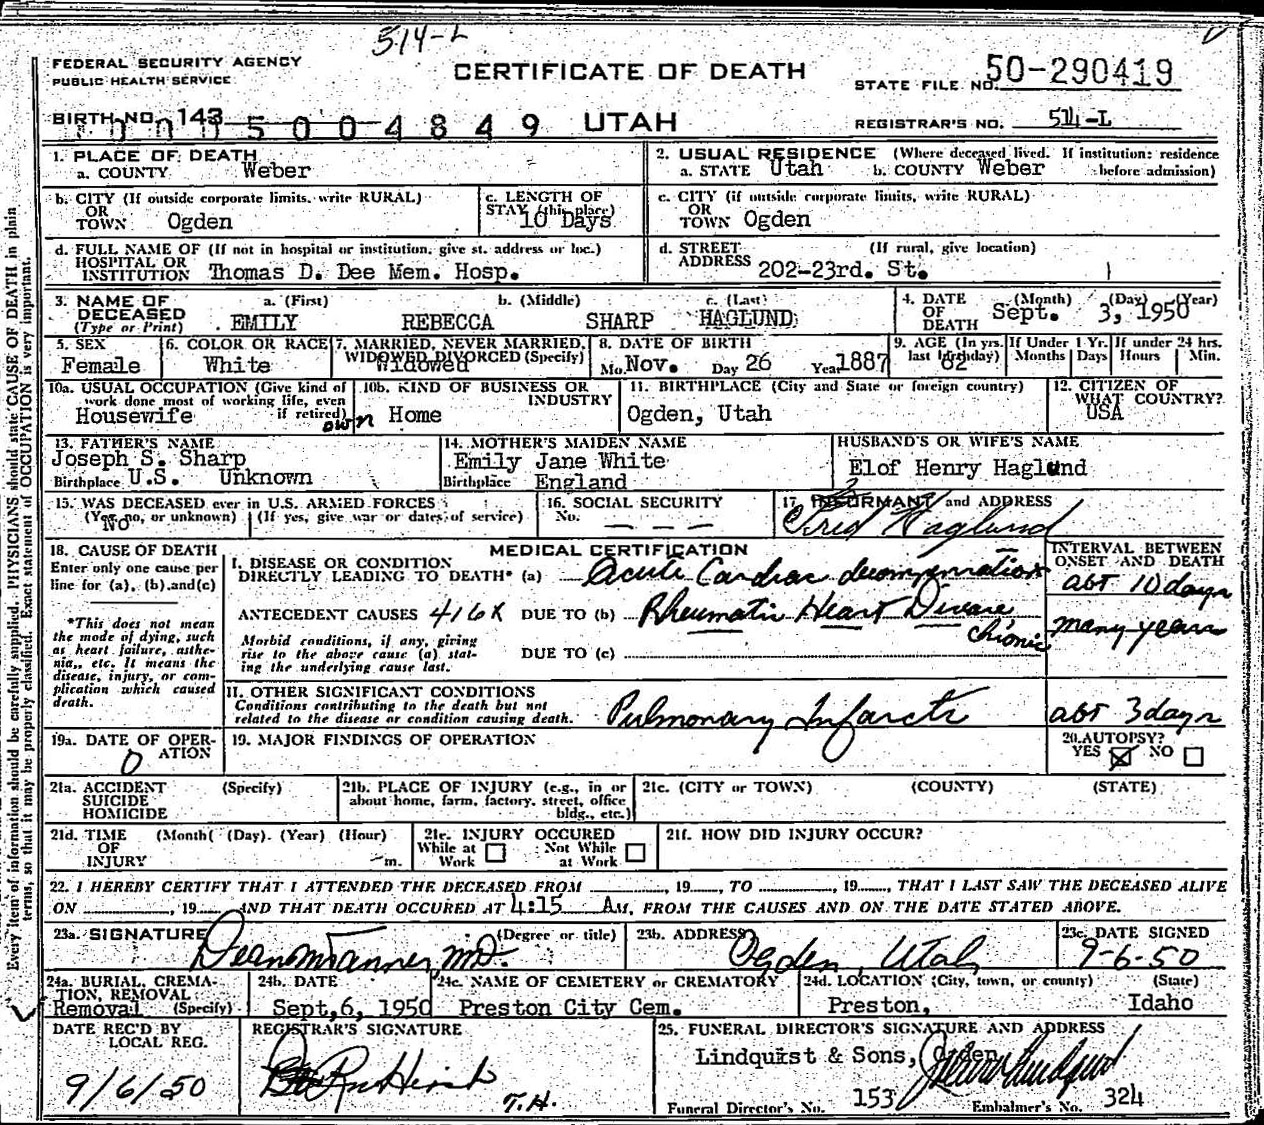 514-L
FEDERAL SECURITY AGENCY
PUBLIC HEALTH SERVICE
CERTIFICATE OF DEATH
STATE FILE NO. 50-290419
BIRTH NO. 143
0 0 0 5 0 0 4 8 4 9
UTAH
REGISTRAR'S NO. 514-L
1. PLACE OF DEATH
a. COUNTY Weber
2. USUAL RESIDENCE (Where deceased lived. If institution: residence before admission)
a. STATE Utah b. COUNTY Weber
b. CITY (If outside corporate limits, write RURAL)
OR
TOWN Ogden
c. LENGTH OF
STAY (this place)
10 Days
c. CITY (if outside corporate limits, write RURAL)
OR
TOWN Ogden
d. FULL NAME OF (If not in hospital or institution, give st. address or loc.)
HOSPITAL OR
INSTITUTION Thomas D. Dee Mem. Hosp.
d. STREET (If rural, give location)
ADDRESS 202-23rd. St.
3. NAME OF DECEASED (Type or Print)
a. (First) b. (Middle) c. (Last)
EMILY REBECCA SHARP HAGLUND
4. DATE OF DEATH (Month) (Day) (Year)
Sept. 3, 1950
5. SEX
Female
6. COLOR OR RACE
White
7. MARRIED, NEVER MARRIED,
WIDOWED DIVORCED (Specify)
Widowed
8. DATE OF BIRTH
Mo. Nov. Day 26 Year 1887
9. AGE (In yrs. last birthday)
62
If Under 1 Yr.
Months Days
If under 24 hrs.
Hours Min.
10a. USUAL OCCUPATION (Give kind of work done most of working life, even if retired)
Housewife
10b. KIND OF BUSINESS OR INDUSTRY
own Home
11. BIRTHPLACE (City and State or foreign country)
Ogden, Utah
12. CITIZEN OF WHAT COUNTRY?
USA
13. FATHER'S NAME
Joseph S. Sharp
Birthplace U.S. Unknown
14. MOTHER'S MAIDEN NAME
Emily Jane White
Birthplace England
HUSBAND'S OR WIFE'S NAME
Elof Henry Haglund
15. WAS DECEASED ever in U.S. ARMED FORCES
(Yes, no, or unknown) (If yes, give war or dates of service)
No
16. SOCIAL SECURITY
No. — — —
17. INFORMANT and ADDRESS
Fred Haglund
18. CAUSE OF DEATH
Enter only one cause per line for (a), (b), and (c)
*This does not mean the mode of dying, such as heart failure, asthenia, etc. It means the disease, injury, or complication which caused death.
MEDICAL CERTIFICATION
I. DISEASE OR CONDITION
DIRECTLY LEADING TO DEATH* (a) Acute Cardiac decompensation
ANTECEDENT CAUSES 416X DUE TO (b) Rheumatic Heart Disease
chronic
Morbid conditions, if any, giving rise to the above cause (a) stating the underlying cause last.
DUE TO (c)
INTERVAL BETWEEN
ONSET AND DEATH
abt 10 days
many years
II. OTHER SIGNIFICANT CONDITIONS
Conditions contributing to the death but not
related to the disease or condition causing death.
Pulmonary Infarcts
abt 3 days
19a. DATE OF OPERATION
0
19. MAJOR FINDINGS OF OPERATION
20. AUTOPSY?
YES NO
21a. ACCIDENT (Specify)
SUICIDE
HOMICIDE
21b. PLACE OF INJURY (e.g., in or about home, farm, factory, street, office bldg., etc.)
21c. (CITY or TOWN) (COUNTY) (STATE)
21d. TIME (Month( (Day). (Year) (Hour)
OF
INJURY m.
21e. INJURY OCCURED
While at Work Not While at Work
21f. HOW DID INJURY OCCUR?
22. I HEREBY CERTIFY THAT I ATTENDED THE DECEASED FROM , 19 , TO , 19 , THAT I LAST SAW THE DECEASED ALIVE
ON , 19 AND THAT DEATH OCCURED AT 4:15 AM, FROM THE CAUSES AND ON THE DATE STATED ABOVE.
23a. SIGNATURE (Degree or title)
Dean Tanner, MD.
23b. ADDRESS
Ogden, Utah
23c. DATE SIGNED
9-6-50
24a. BURIAL, CREMATION, REMOVAL (Specify)
Removal
24b. DATE
Sept, 6, 1950
24c. NAME OF CEMETERY or CREMATORY
Preston City Cem.
24d. LOCATION (City, town, or county) (State)
Preston, Idaho
DATE REC'D BY LOCAL REG.
9/6/50
REGISTRAR'S SIGNATURE
T.H.
25. FUNERAL DIRECTOR'S SIGNATURE AND ADDRESS
Lindquist & Sons, Ogden
Funeral Director's No. 153 Embalmer's No. 324
Every item of information should be carefully supplied. PHYSICIANS should state CAUSE OF DEATH in plain
terms, so that it may be properly classified. Exact statement of OCCUPATION is very important.